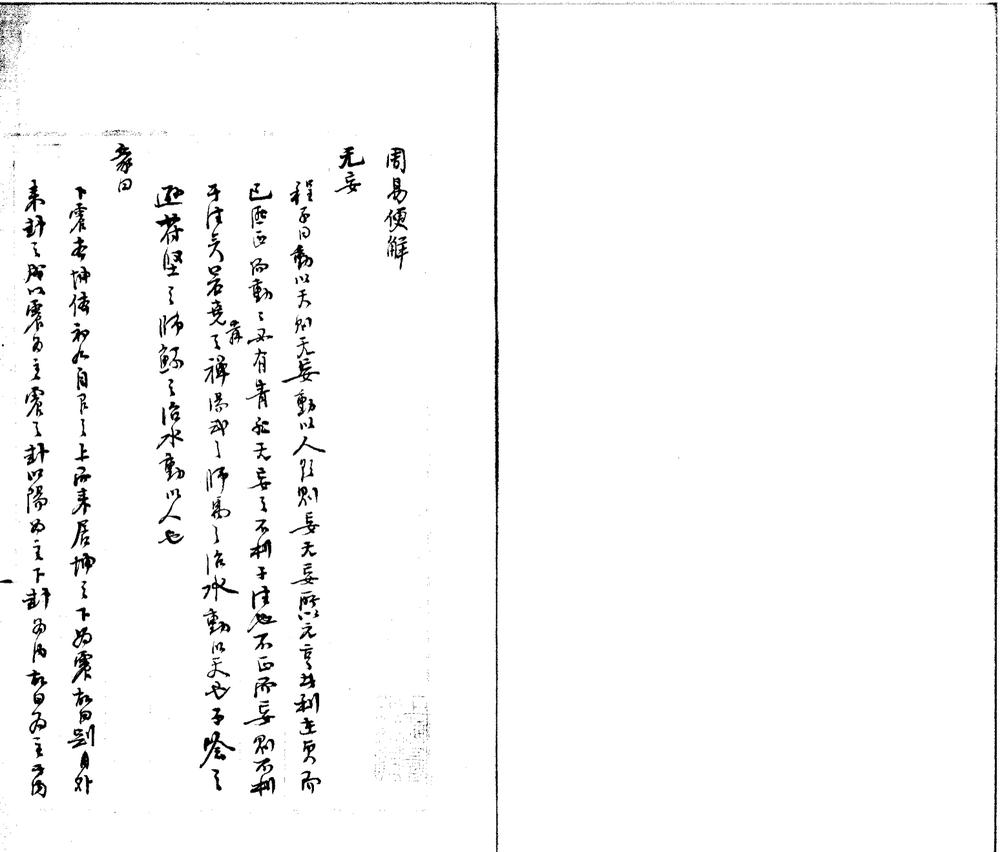 周易便解
无妄
程子曰動以天則无妄動以人欲則妄无妄所以元亨其利在貞而
已匪正而動動必有眚 无妄之不利于往也不正而妄則不利
于往矣若堯舜之禪湯武之師禹之治水動以天也子噲之
遜苻堅之師鯀之治水動以人也
彖曰
下震本坤體初九自 之上而來居坤之下為震故曰剛自外
來卦之 以震為主震之卦以陽為主下卦為內故曰為主于內